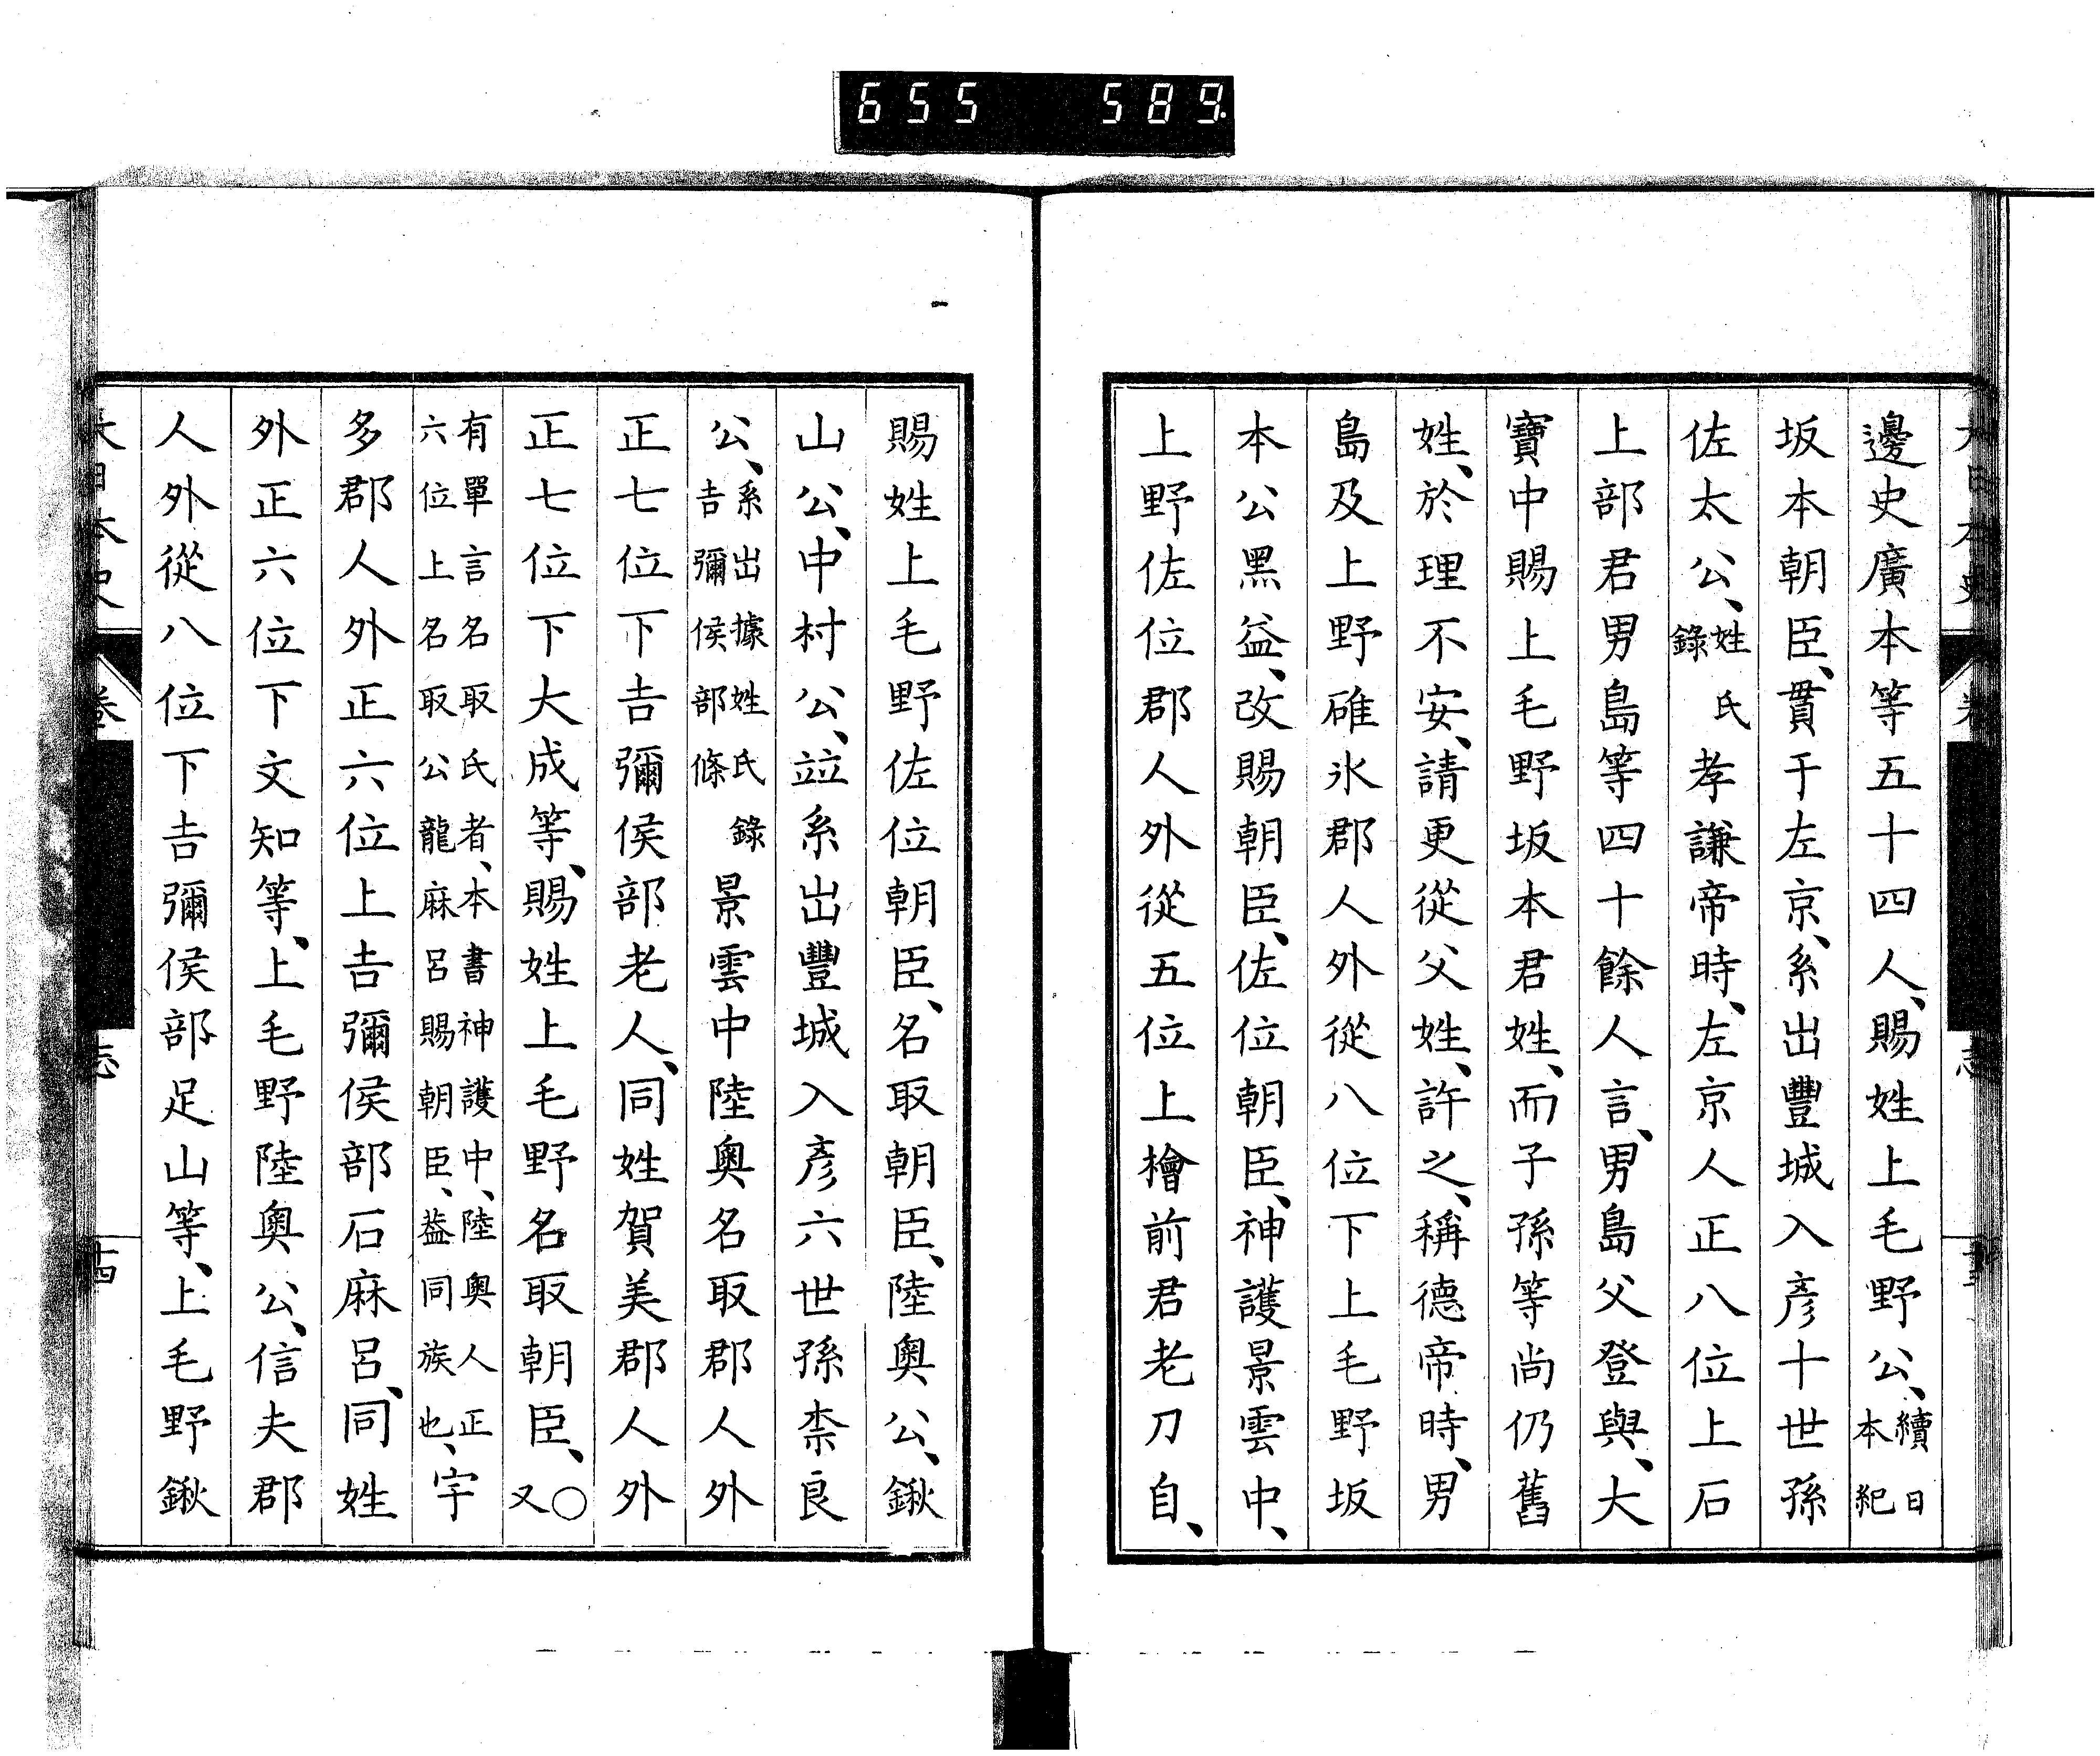 655 589.
大日本史 卷 志
邊史廣本等五十四人、賜姓上毛野公、續日本紀
坂本朝臣、貫于左京、系出豐城入彥十世孫
佐太公、姓氏錄 孝謙帝時、左京人正八位上石
上部君男島等四十餘人言、男島父登與、大
寶中賜上毛野坂本君姓、而子孫等尚仍舊
姓、於理不安、請更從父姓、許之、稱德帝時、男
島及上野碓氷郡人外從八位下上毛野坂
本公黑益、改賜朝臣、佐位朝臣、神護景雲中、
上野佐位郡人外從五位上檜前君老刀自、
賜姓上毛野佐位朝臣、名取朝臣、陸奧公、鍬
山公、中村公、竝系出豐城入彥六世孫柰良
公、系出據姓氏錄吉彌侯部條 景雲中陸奧名取郡人外
正七位下吉彌侯部老人、同姓賀美郡人外
正七位下大成等、賜姓上毛野名取朝臣、○又
有單言名取氏者、本書神護中、陸奧人正六位上名取公龍麻呂賜朝臣、益同族也、宇
多郡人外正六位上吉彌侯部石麻呂、同姓
外正六位下文知等、上毛野陸奧公、信夫郡
人外從八位下吉彌侯部足山等、上毛野鍬
大日本史 卷 志 十四